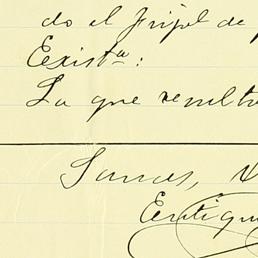 do el frijol de
Eexist.ª:
La que result
Sumas,